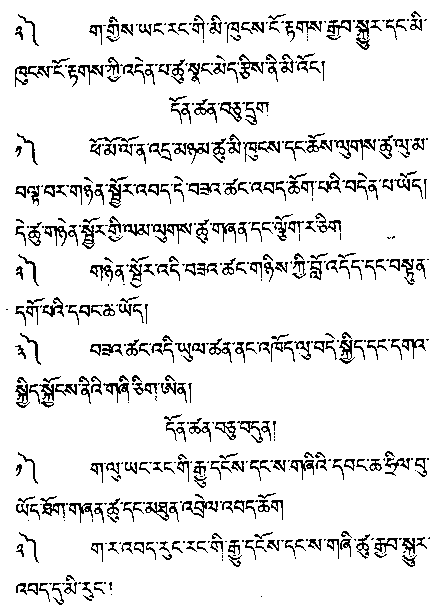 ༢༽ ག་གྱིས་ཡང་རང་གི་མི་ཁུངས་ངོ་རྟགས་རྒྱབ་སྐྱུར་དང་མི་
ཁུངས་ངོ་རྟགས་ཀྱི་འདེན་པ་ཚུ་སྣང་མེད་རྩིས་ནི་མི་འོང།
དོན་ཚན་བཅུ་དྲུག
༡༽ ཕོ་མོ་ལོ་ན་འདྲ་མཉམ་ཚུ་མི་ཁུངས་དང་ཆོས་ལུགས་ཚུ་ལུ་མ་
བལྟ་བར་གཉེན་སྦྱོར་འབད་དེ་བཟའ་ཚང་འབད་ཆོག་པའི་བདེན་པ་ཡོད།
དེ་ཚུ་གཉེན་སྦྱོར་གྱི་ལམ་ལུགས་ཚུ་གཞན་དང་ལྕོག་ར་ཅིག
༢༽ གཉེན་སྦྱོར་འདི་བཟའ་ཚང་གཉིས་ཀྱི་བློ་འདོད་དང་བསྟུན་
དགོ་པའི་དབང་ཆ་ཡོད།
༣༽ བཟའ་ཚང་འདི་ཡུལ་ཚན་ནང་འཁོད་ལུ་བདེ་སྐྱིད་དང་དགའ་
སྐྱིད་སྐྱོངས་ནིའི་གཞི་ཅིག་ཨིན།
དོན་ཚན་བཅུ་བདུན།
༡༽ ག་ལུ་ཡང་རང་གི་རྒྱུ་དངོས་དང་ས་གཞིའི་དབང་ཆ་ཧྲིལ་བུ་
ཡོད་ཐོག་གཞན་ཚུ་དང་མཐུན་འབྲེལ་འབད་ཆོག
༢༽ ག་ར་འབད་རུང་རང་གི་རྒྱུ་དངོས་དང་ས་གཞི་ཚུ་རྒྱབ་སྐྱུར་
འབད་དུ་མི་རུང་།